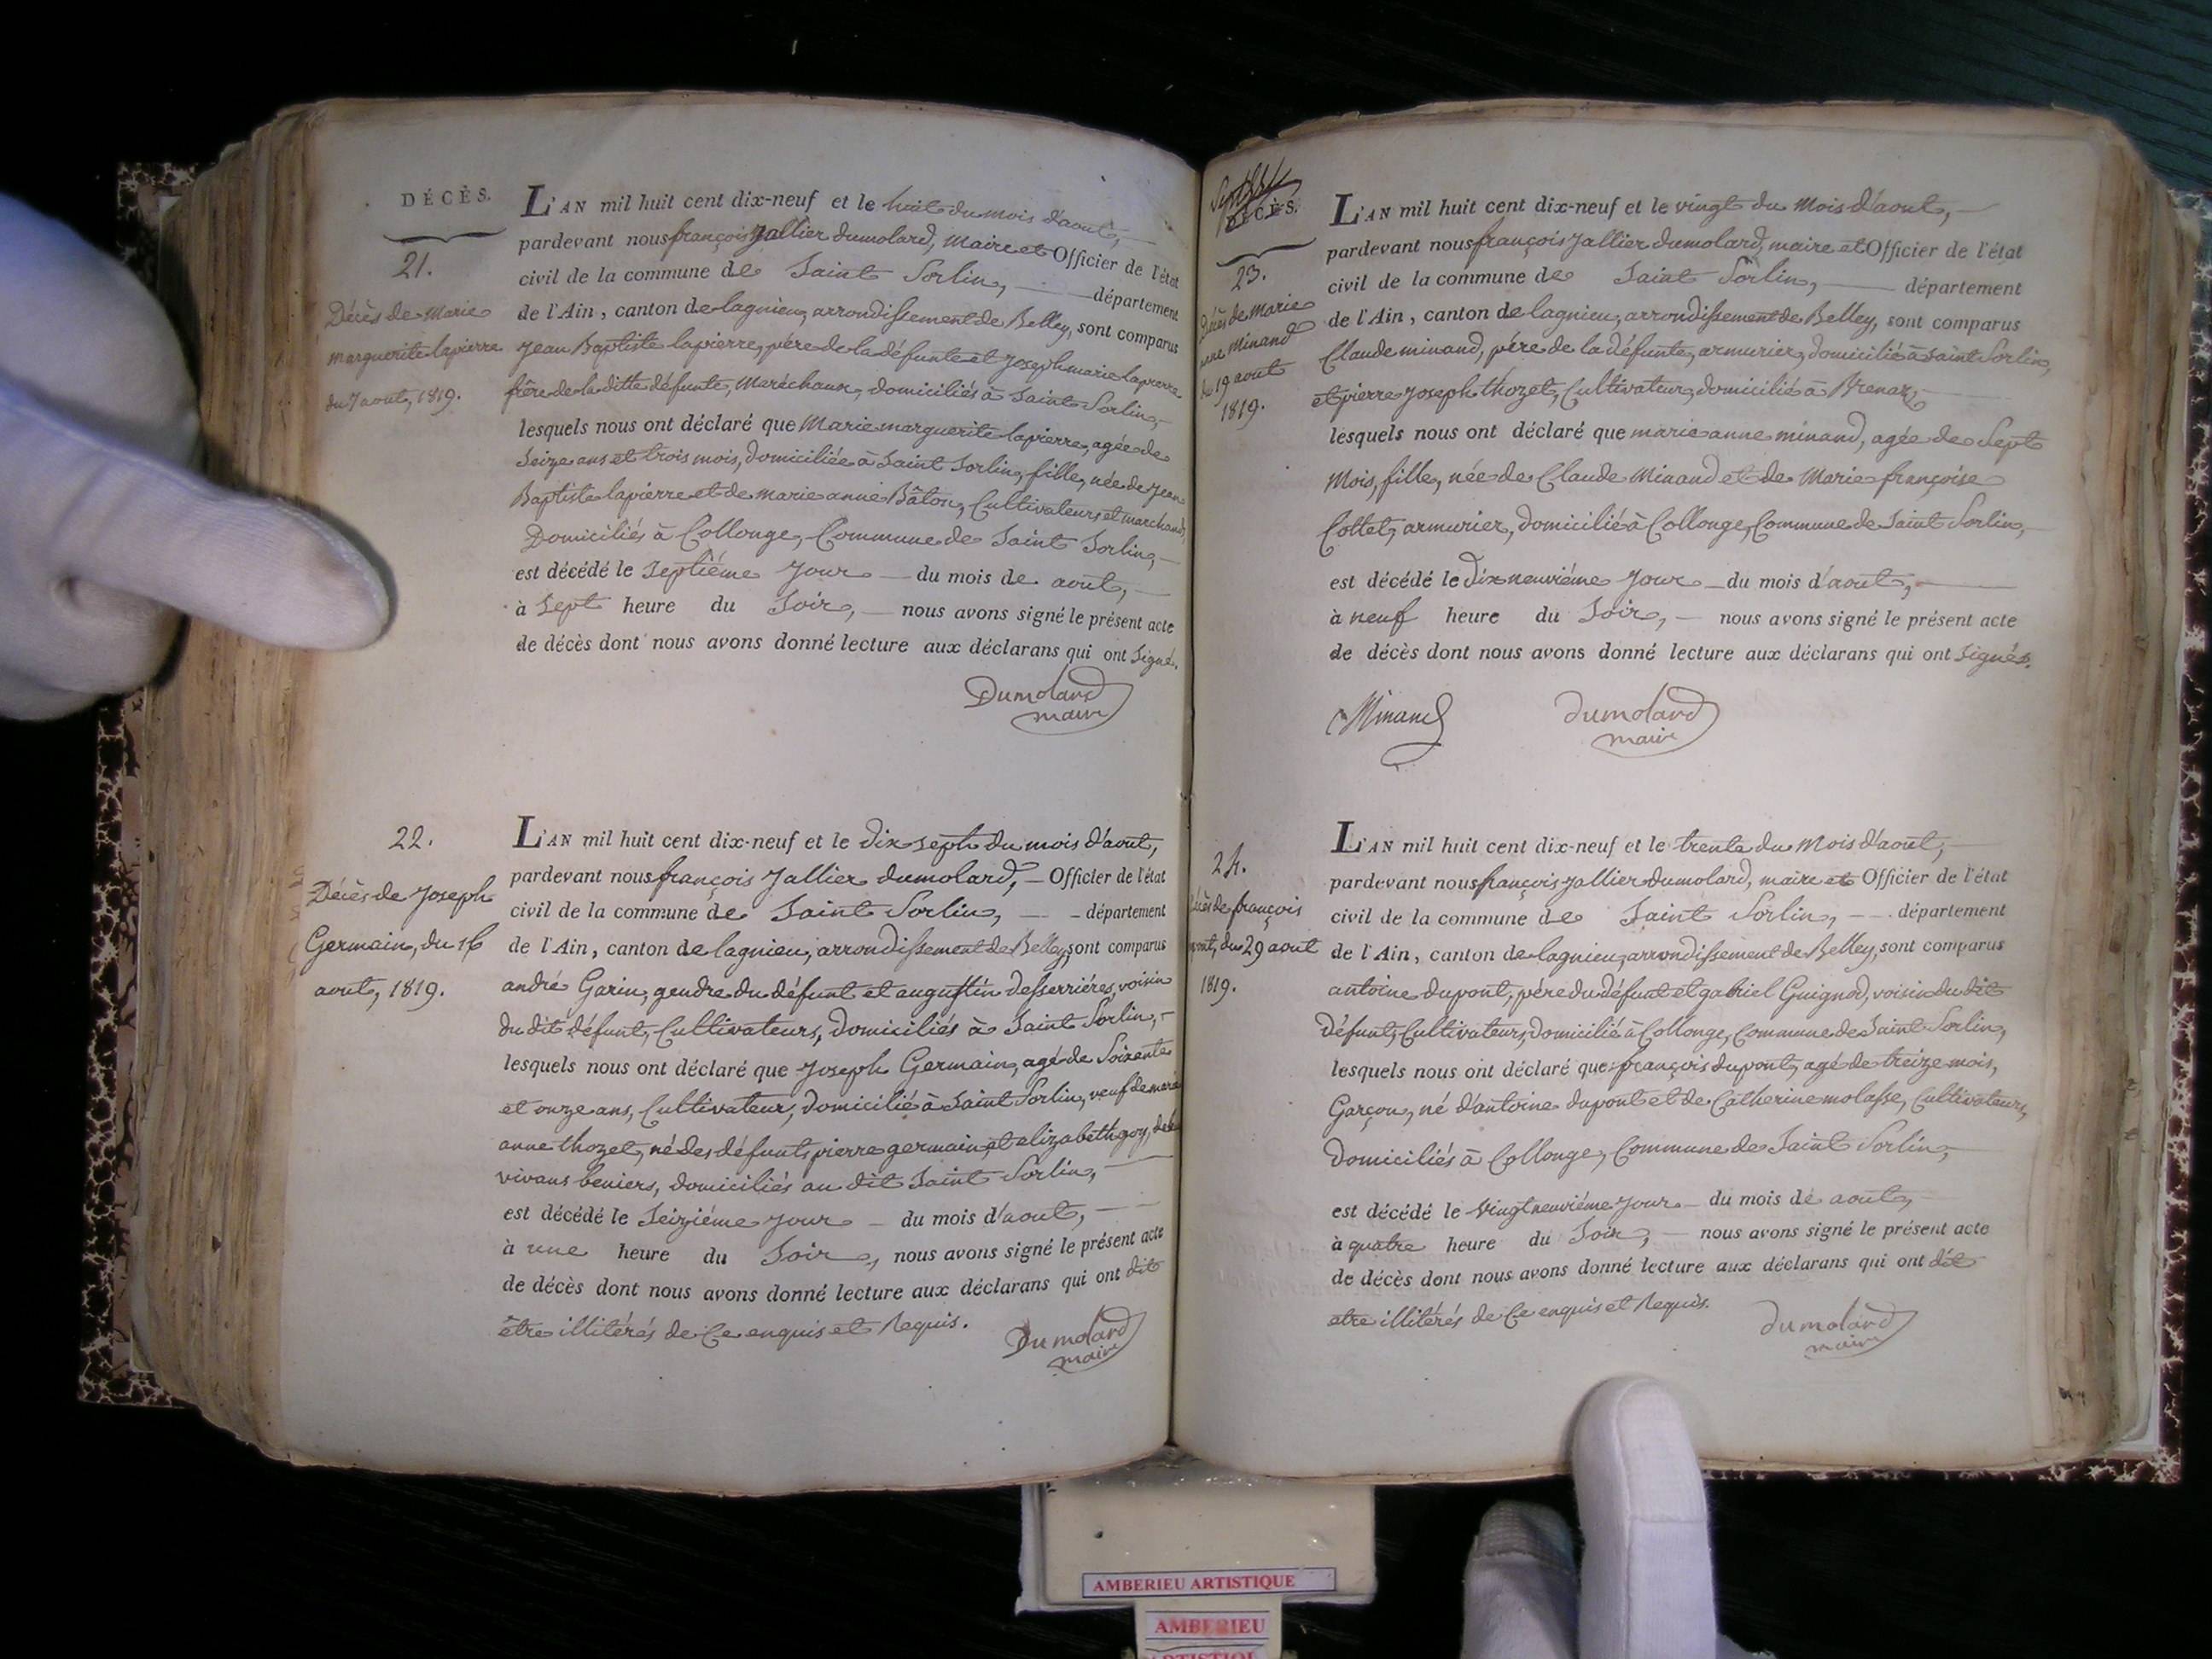 DÉCÈS.
21.
Décès de Marie
marguerite lapierre
du 7 aout, 1819.
L'AN mil huit cent dix-neuf et le huit du mois d'aout,
pardevant nous françois Jallier dumolard, Maire et Officier de l'état
civil de la commune de Saint Sorlin, département
de l'Ain, canton de lagnieu, arrondissement de Belley, sont comparus
Jean Baptiste lapierre, père de la défunte et Joseph marie lapierre
frère de la ditte défunte, Maréchaux, domiciliés à Saint Sorlin,
lesquels nous ont déclaré que Marie marguerite lapierre, agée de
Seize ans et trois mois, domiciliée à Saint Sorlin, fille, née de Jean
Baptiste lapierre et de marie anne Bâton, Cultivateurs et marchands,
Domiciliés à Collonge, Commune de Saint Sorlin,
est décédé le Septiéme Jour du mois de aout,
à Sept heure du Soir, nous avons signé le présent acte
de décès dont nous avons donné lecture aux déclarans qui ont Signé.
Dumolard
maire
22.
Décès de Joseph
Germain, du 16
aout, 1819.
L'AN mil huit cent dix-neuf et le Dix sept du mois d'aout,
pardevant nous françois Jallier dumolard, Officier de l'état
civil de la commune de Saint Sorlin, département
de l'Ain, canton de lagnieu, arrondissement de Belley, sont comparus
andré Garin, gendre du défunt et augustin desserriéres, voisin
du dit défunt, Cultivateurs, domiciliés à Saint Sorlin,
lesquels nous ont déclaré que Joseph Germain, agé de Soixante
et onze ans, Cultivateur, domicilié à Saint Sorlin, veuf de marie
anne thozet, né des défunts pierre germain et elizabeth goy, de leur
vivans beniers, domiciliés au dit Saint Sorlin,
est décédé le Seiziéme Jour du mois d'aout,
à une heure du Soir, nous avons signé le présent acte
de décès dont nous avons donné lecture aux déclarans qui ont dit
être illitérés de Ce enquis et Requis.
Dumolard
maire
DÉCÈS.
23.
Décès de Marie
anne Minand
du 19 aout
1819.
L'AN mil huit cent dix-neuf et le vingt du Mois d'aout,
pardevant nous françois Jallier dumolard, maire et Officier de l'état
civil de la commune de Saint Sorlin, département
de l'Ain, canton de lagnieu, arrondissement de Belley, sont comparus
Claude minand, pére de la défunte, armurier, domicilié à Saint Sorlin,
et pierre Joseph thozet, Cultivateur, domicilié à Brenaz,
lesquels nous ont déclaré que marie anne minand, agée de Sept
Mois, fille, née de Claude Minand et de Marie françoise
Collet, armurier, domicilié à Collonge, Commune de Saint Sorlin,
est décédé le Dix neuviéme Jour du mois d'aout,
à neuf heure du Soir, nous avons signé le présent acte
de décès dont nous avons donné lecture aux déclarans qui ont Signés.
Minand
Dumolard
maire
24.
Décès de françois
pont, du 29 aout
1819.
L'AN mil huit cent dix-neuf et le trente du Mois d'aout,
pardevant nous françois Jallier dumolard, maire et Officier de l'état
civil de la commune de Saint Sorlin, département
de l'Ain, canton de lagnieu, arrondissement de Belley, sont comparus
antoine dupont, pére du défunt et gabriel Guignod, voisin du dit
défunt, Cultivateurs, domicilié à Collonge, Commune de Saint Sorlin,
lesquels nous ont déclaré que françois dupont, agé de treize mois,
Garçon, né d'antoine dupont et de Catherine molasse, Cultivateurs,
domiciliés à Collonge, Commune de Saint Sorlin,
est décédé le Vingt neuviéme Jour du mois de aout,
à quatre heure du Soir, nous avons signé le présent acte
de décès dont nous avons donné lecture aux déclarans qui ont dit
etre illitérés de Ce enquis et Requis.
Dumolard
maire
AMBERIEU ARTISTIQUE
AMBERIEU
ARTISTIQUE